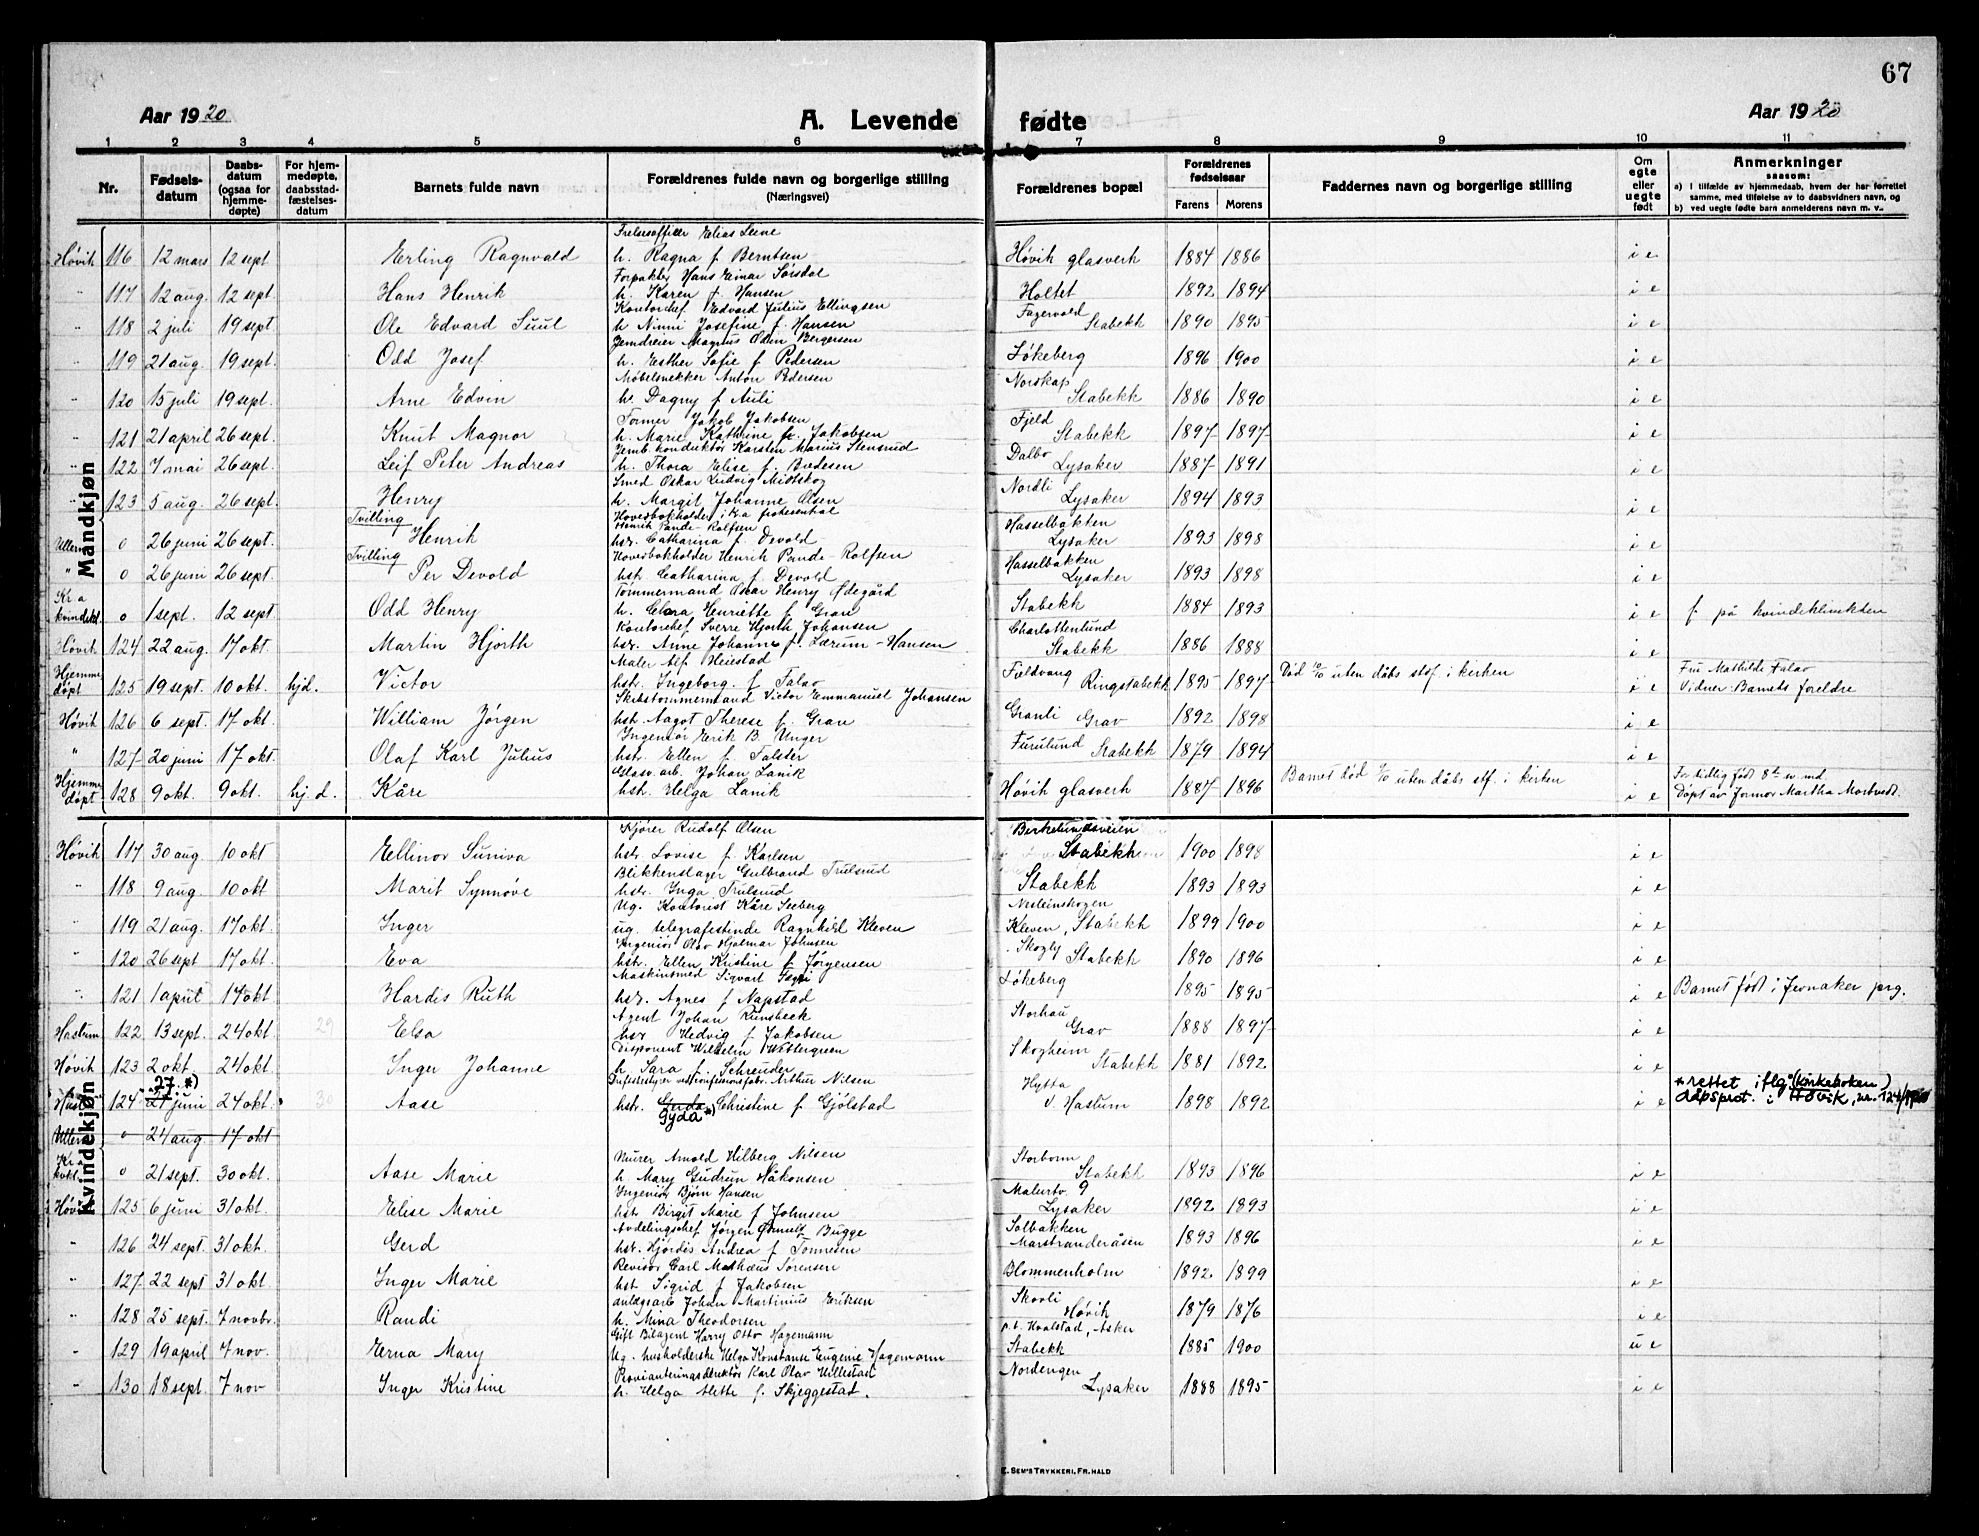 67
Aar 1920 A. Levende fødte Aar 1920
1 2 3 4 5 6 7 8 9 10 11
Nr. Fødsels-datum Daabs-datum (ogsaa for hjemme-døpte) For hjem-medøpte, daabsstad-fæstelses-datum Barnets fulde navn Forældrenes fulde navn og borgerlige stilling (Næringsvei) Forældrenes bopæl Forældrenes fødselsaar Farens Morens Faddernes navn og borgerlige stilling Om egte eller uegte født Anmerkninger saasom: a) i tilfælde av hjemmedaab, hvem der har forrettet samme, med tilføielse av to daabsvidners navn, og b) ved uegte fødte barn anmelderens navn m. v..
Mandkjøn
Frelsesoffiser Elias Leene
Høvik 116 12 mars 12 sept Erling Ragnvald h. Ragna f. Berntsen Høvik glasverk 1884 1886 i e
Forpakter Hans Einar Sørsdal
" 117 12 aug. 12 sept. Hans Henrik h. Karen f. Hansen Holtet 1892 1894 i e
Kontorchef Edvard Julius Ellingsen Fagervold
" 118 2 juli 19 sept Ole Edvard Suul h Ninni Josefine f. Hansen Stabekk 1890 1895 i e
Jerndreier Magnus Odin Bergersen
" 119 21 aug. 19 sept. Odd Josef h. Esther Sofie f Pedersen Løkeberg 1896 1900 i e
Møbelsnekker Anton Pedersen Norskap
" 120 15 juli 19 sept. Arne Edvin h. Dagny f Auli Stabekk 1886 1890 i e
Former Jakob Jakobsen Fjeld
" 121 21 april 26 sept. Knut Magnor h. Marie Kathrine f. Jakobsen Stabekk 1897 1897 i e
Jernb. konduktør Karsten Marius Stensrud Dalbo
" 122 7 mai 26 sept. Leif Peter Andreas h. Thora Elise f. Bredesen Lysaker 1887 1891 i e
Smed Oskar Ludvig Midtskog Nordli
" 123 5 aug. 26 sept. Henry h. Margit Johanne Olsen Lysaker 1894 1893 i e
Tvilling Hovedbokholder i Kr.a Henrik Pande-Rolfsen Hasselbakken
Ullern o 26 juni 26 sept. Henrik hstr. Catharina f. Devold Lysaker 1893 1898 i e
Tvilling Hovedbokholder Henrik Pande-Rolfsen Hasselbakken
" o 26 juni 26 sept. Per Devold hstr. Catharina f. Devold Lysaker 1893 1898 i e
Kra Tømmermand Oskar Henry Ødegård
kvindekl. o 1 sept. 12 sept Odd Henry h. Clara Henriette f. Gran Stabekk 1884 1893 i e f. på kvindeklinikken
Kontorchef Sverre Hjorth Johansen Charlottenlund
Høvik 124 22 aug. 17 okt. Martin Hjorth hstr. Anne Johanne f. Lærum-Hansen Stabekk 1886 1888 i e
Maler Alf Heiestad Fjeldvang Død uten dåbs stf. i kirken Fru Mathilde Falao
Hjemmedøpt 125 19 sept. 10 okt. hjd. Victor hstr. Ingeborg. f. Falao Ringstabekk 1895 1897 i e Vidner: Barnets foreldre
Skibstømmermand Victor Emmanuel Johansen Granli
Høvik 126 6 sept. 17 okt. William Jørgen hstr. Aagot Therese f. Grau Grav 1892 1898 i e
Ingeniør Erik B. Unger Furulund
" 127 20 juni 17 okt. Olaf Karl Julius hstr. Ellen f. Falster Stabekk 1879 1894 i e
Glasv. arb. Johan Lanik Barnet død uten dåbs stf. i kirken For tidlig født
Hjemmedøpt 128 9 okt. 9 okt. hj. d. Kåre hstr. Helga Lanik Høvik glasverk 1887 1896 i e Døpt av jormor Martha Mortvedt.
Kvindekjøn
Kjører Rudolf Olsen Birkelundsveien
Høvik 117 30 aug 10 okt Ellinor Suniva hstr. Lovise f. Karlsen Stabekk 1900 1898 i e
Blikkenslager Gulbrand Trulsrud
" 118 9 aug. 10 okt Marit Synnøve hstr. Inga Trulsrud Stabekk 1893 1893 i e
Ug. Kontorist Kåre Seeberg
" 119 21 aug. 17 okt. Inger ug. telegrafistinde Ragnhild Kleven Kleven, Stabekk 1899 1900 i e
Ingeniør Olav Hjalmar Johnsen Skogly
" 120 26 sept 17 okt. Eva hstr. Ellen Kristine f. Jørgensen Stabekk 1890 1896 i e
Maskinsmed Sigvart Løkeberg
" 121 1 april 17 okt Hardis Ruth hstr. Agnes f Napstad 1895 1895 i e Barnet født i Jevnaker prg.
Agent Johan Runsbeck Storhau
Haslum 122 13 sept. 24 okt. 29 Elsa hstr Hedvig f Jakobsen Grav 1888 1897 i e
Disponent Wilhelm Wettergreen Skogheim
Høvik 123 2 okt. 24 okt. Inger Johanne h Sara f. Schreuder Stabekk 1881 1892 i e
27. *) Arthur Nilsen Hytta *rettet iflg (kirkeboken)
Haslum 124 27 juni 24 okt. 30 Aase hstr. Gerda *) Christine f Gjølstad v. Haslum 1898 1892 i e dåpsprot. i Høvik, nr. 124/1920
Gyda
Ullern o 24 aug 17 okt
Kra Murer Arnold Hilberg Nilsen Storbonn
kvkl. o 21 sept. 30 okt. Aase Marie h. Mary Gudrun Håkonsen Stabekk 1893 1896 i e
Ingeniør Bjørn Hansen Malurtv. 9
Høvik 125 6 juni 31 okt. Elise Marie hstr. Birgit Marie f Johnsen Lysaker 1892 1893 i e
Avdelingschef Jørgen Ørnulf Bugge Solbakken
" 126 24 sept. 31 okt. Gerd hst. Hjørdis Andrea f Tønnesen Marstranderåsen 1893 1896 i e
Revisor Carl Mathæus Sørensen
" 127 22 sept 31 okt Inger Marie hst Sigrid f Jakobsen Blommenholm 1892 1899 i e
anlægsarb Johan Martinius Eriksen Skovli
" 128 25 sept. 7 novbr. Randi h. Mina Theodorsen Høvik 1879 1876 i e
Gift Bilagent Harry Otto Hagemann p.t. Hvalstad, Asker
" 129 19 april 7 nov. Erna Mary Ug. husholderske Helga Konstanse Eugenie Hagemann Stabekk 1885 1900 u e
Provianteringsdirektør Karl Olav Villestad Nordengen
" 130 18 sept. 7 nov Inger Kristine h. Helga Mette f. Skjeggestad. Lysaker 1888 1895 i e
E. SEM'S TRYKKERI, FR. HALD